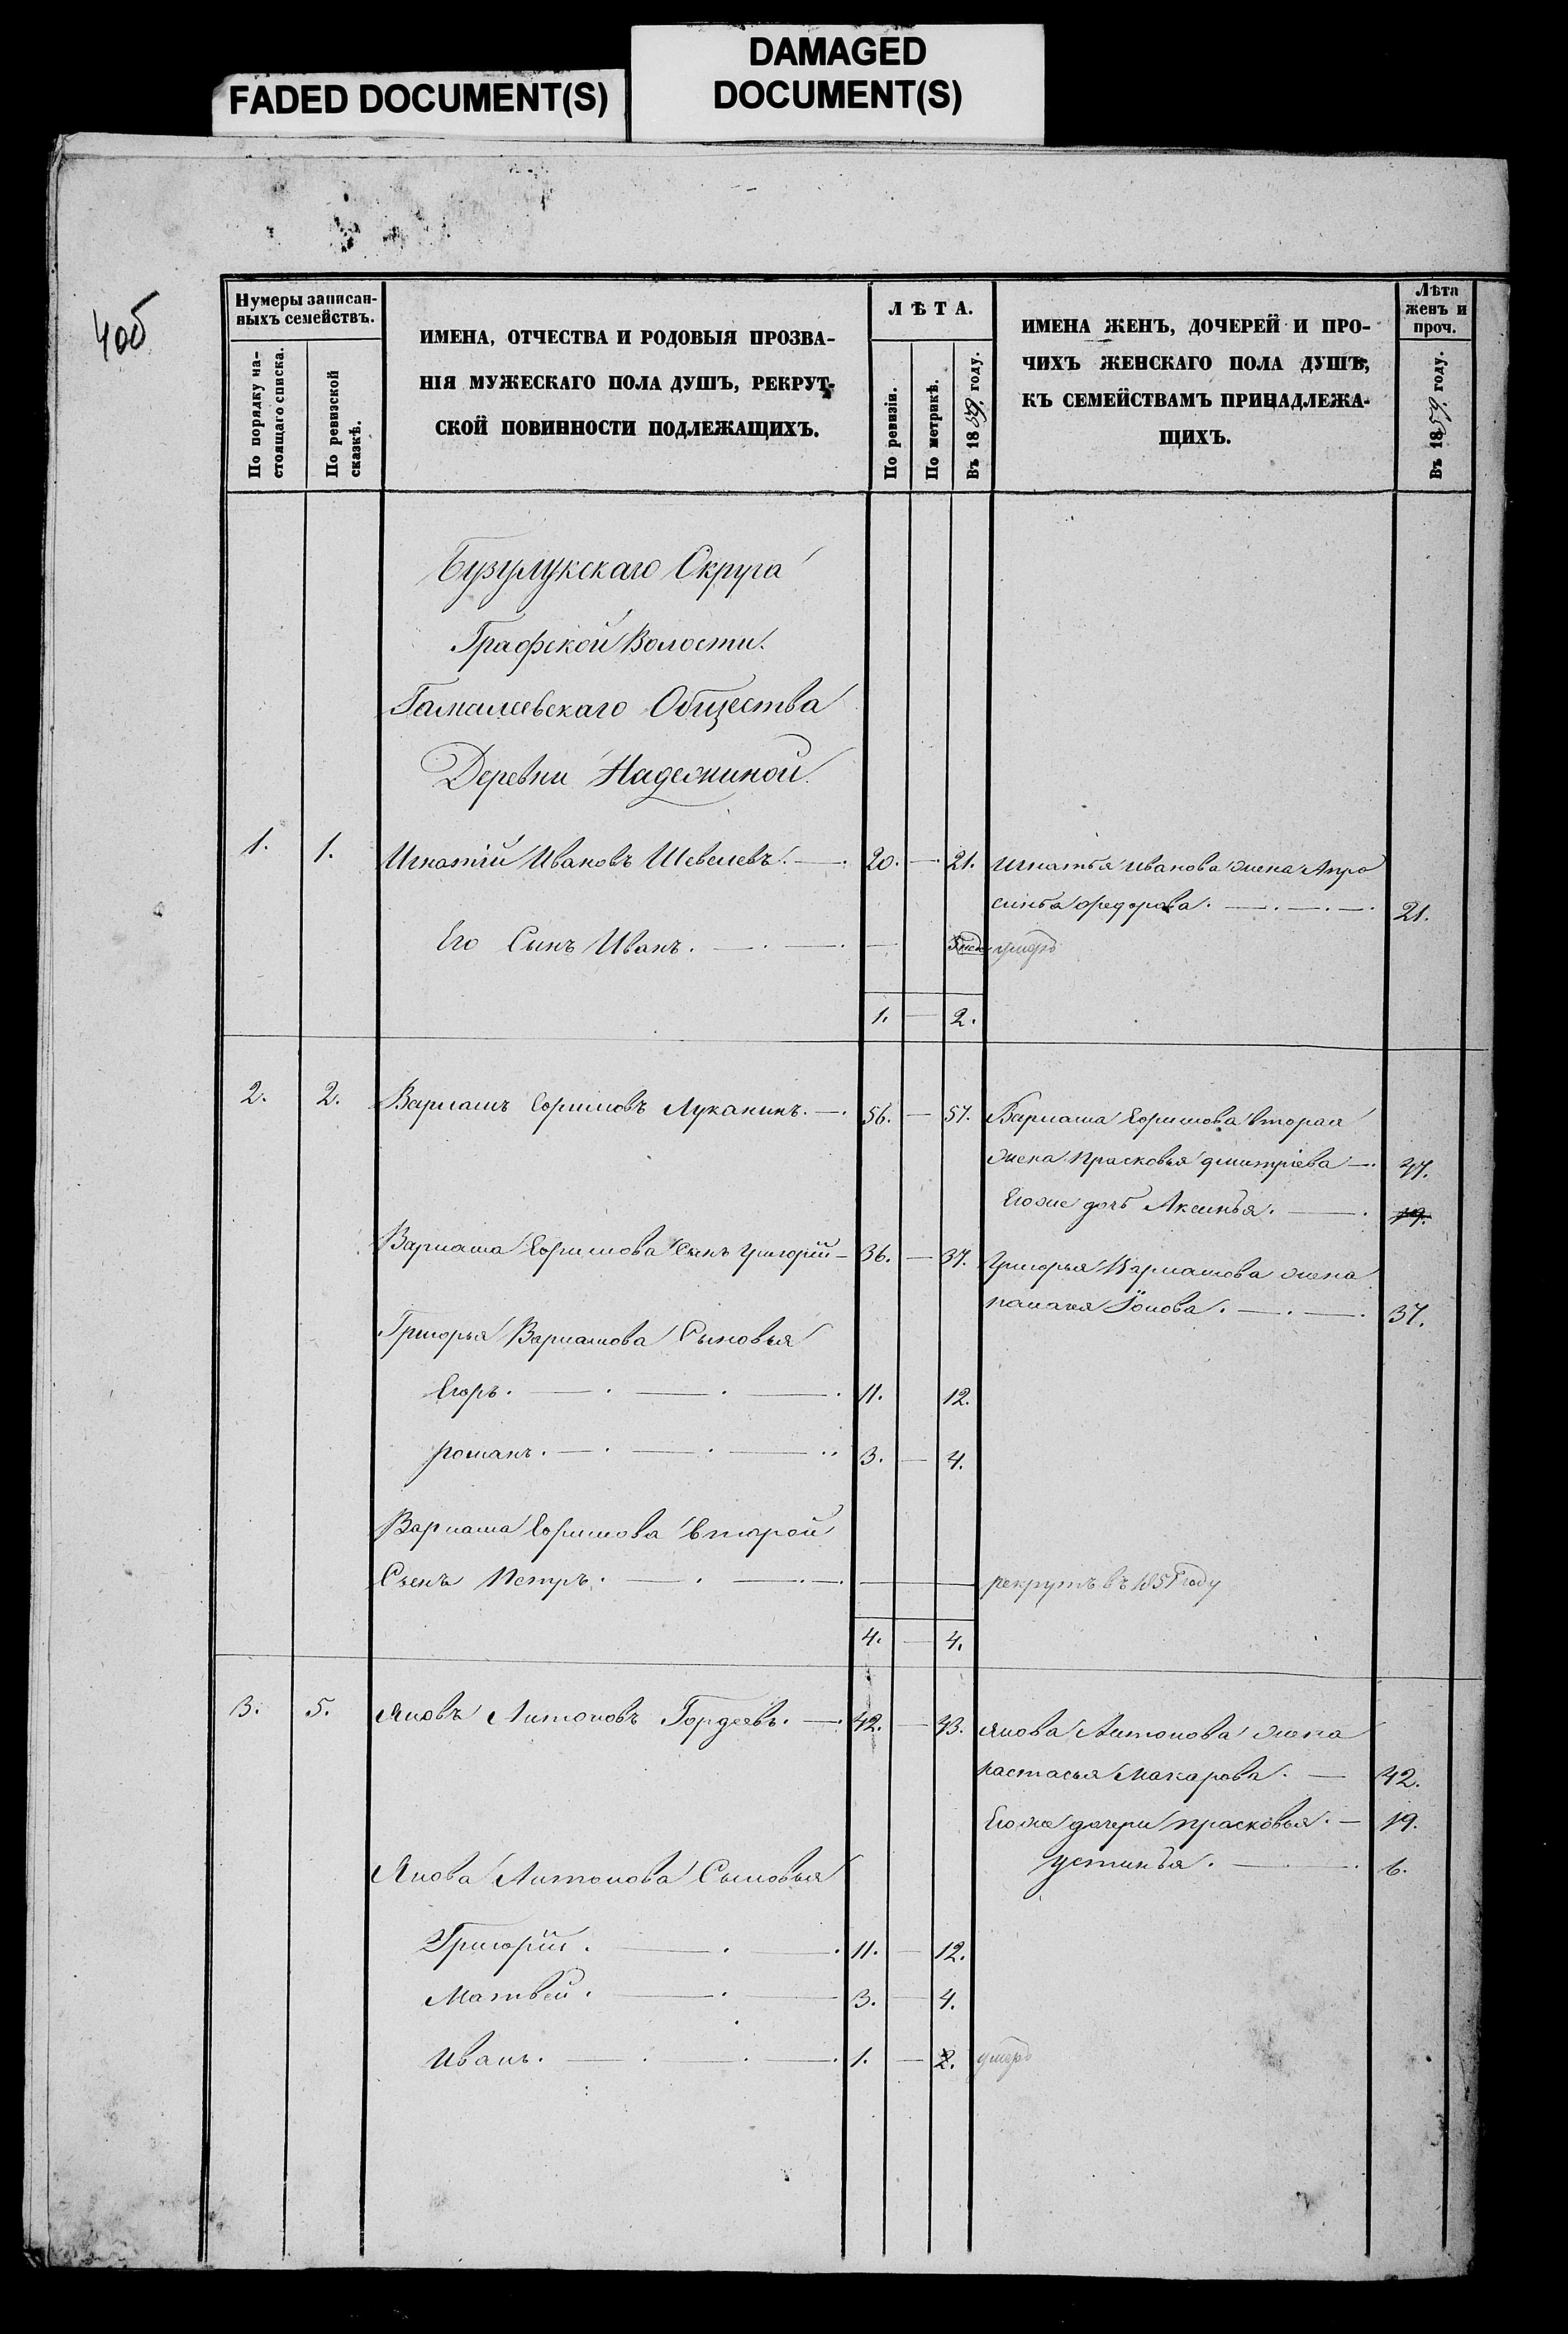 FADED DOCUMENT(S)
DAMAGED
DOCUMENT(S)
406
Нумеры записан-
ныхъ семействъ.
По порядку на-
стоящаго списка.
По ревизской
сказкѣ.
ИМЕНА, ОТЧЕСТВА И РОДОВЫЯ ПРОЗВА-
НІЯ МУЖЕСКАГО ПОЛА ДУШЪ, РЕКРУТ-
СКОЙ ПОВИННОСТИ ПОДЛЕЖАЩИХЪ.
ЛѢТА.
По ревизіи.
По метрикѣ.
Въ 18 году.
ИМЕНА ЖЕНЪ, ДОЧЕРЕЙ И ПРО-
ЧИХЪ ЖЕНСКАГО ПОЛА ДУШЪ,
КЪ СЕМЕЙСТВАМЪ ПРИНАДЛЕЖА-
ЩИХЪ.
Лѣта
женъ и
проч.
Въ 18 году.
Бузулукскаго Округа
Графской Волости.
Гамалеевскаго Общества
Деревни Надежиной.
1. 1. Игнатій Ивановъ Шевелевъ. — 20. — 21. Игнатья Иванова жена Апро
синья Федорова. — 21.
Его Сынъ Иванъ. — — умеръ
1. — 2.
2. 2. Варламъ Ефимовъ Луканинъ. — 56. — 57. Варлама Ефимова вторая
жена Прасковья Дмитріева — 47.
Егоже дочь Аксинья. — 19.
Варлама Ефимова Сынъ Григорій — 36. — 37. Григорья Варламова жена
Іонова. — 37.
Григорья Варламова Сыновья
Егоръ. — 11. 12.
романъ. — 3. — 4.
Варлама Ефимова второй
Сынъ Петръ. — — рекрутъ въ 185 году
4. — 4.
3. 5. Яковъ Антоновъ Гордеевъ. — 42. — 43. Якова Антонова жена
настасья Макарова. — 42.
Егоже дочери прасковья. — 19.
устинья. — 6.
Якова Антонова Сыновья
Григорій. — 11. — 12.
Матвей. — 3. — 4.
Иванъ. — 1. — 2. умеръ